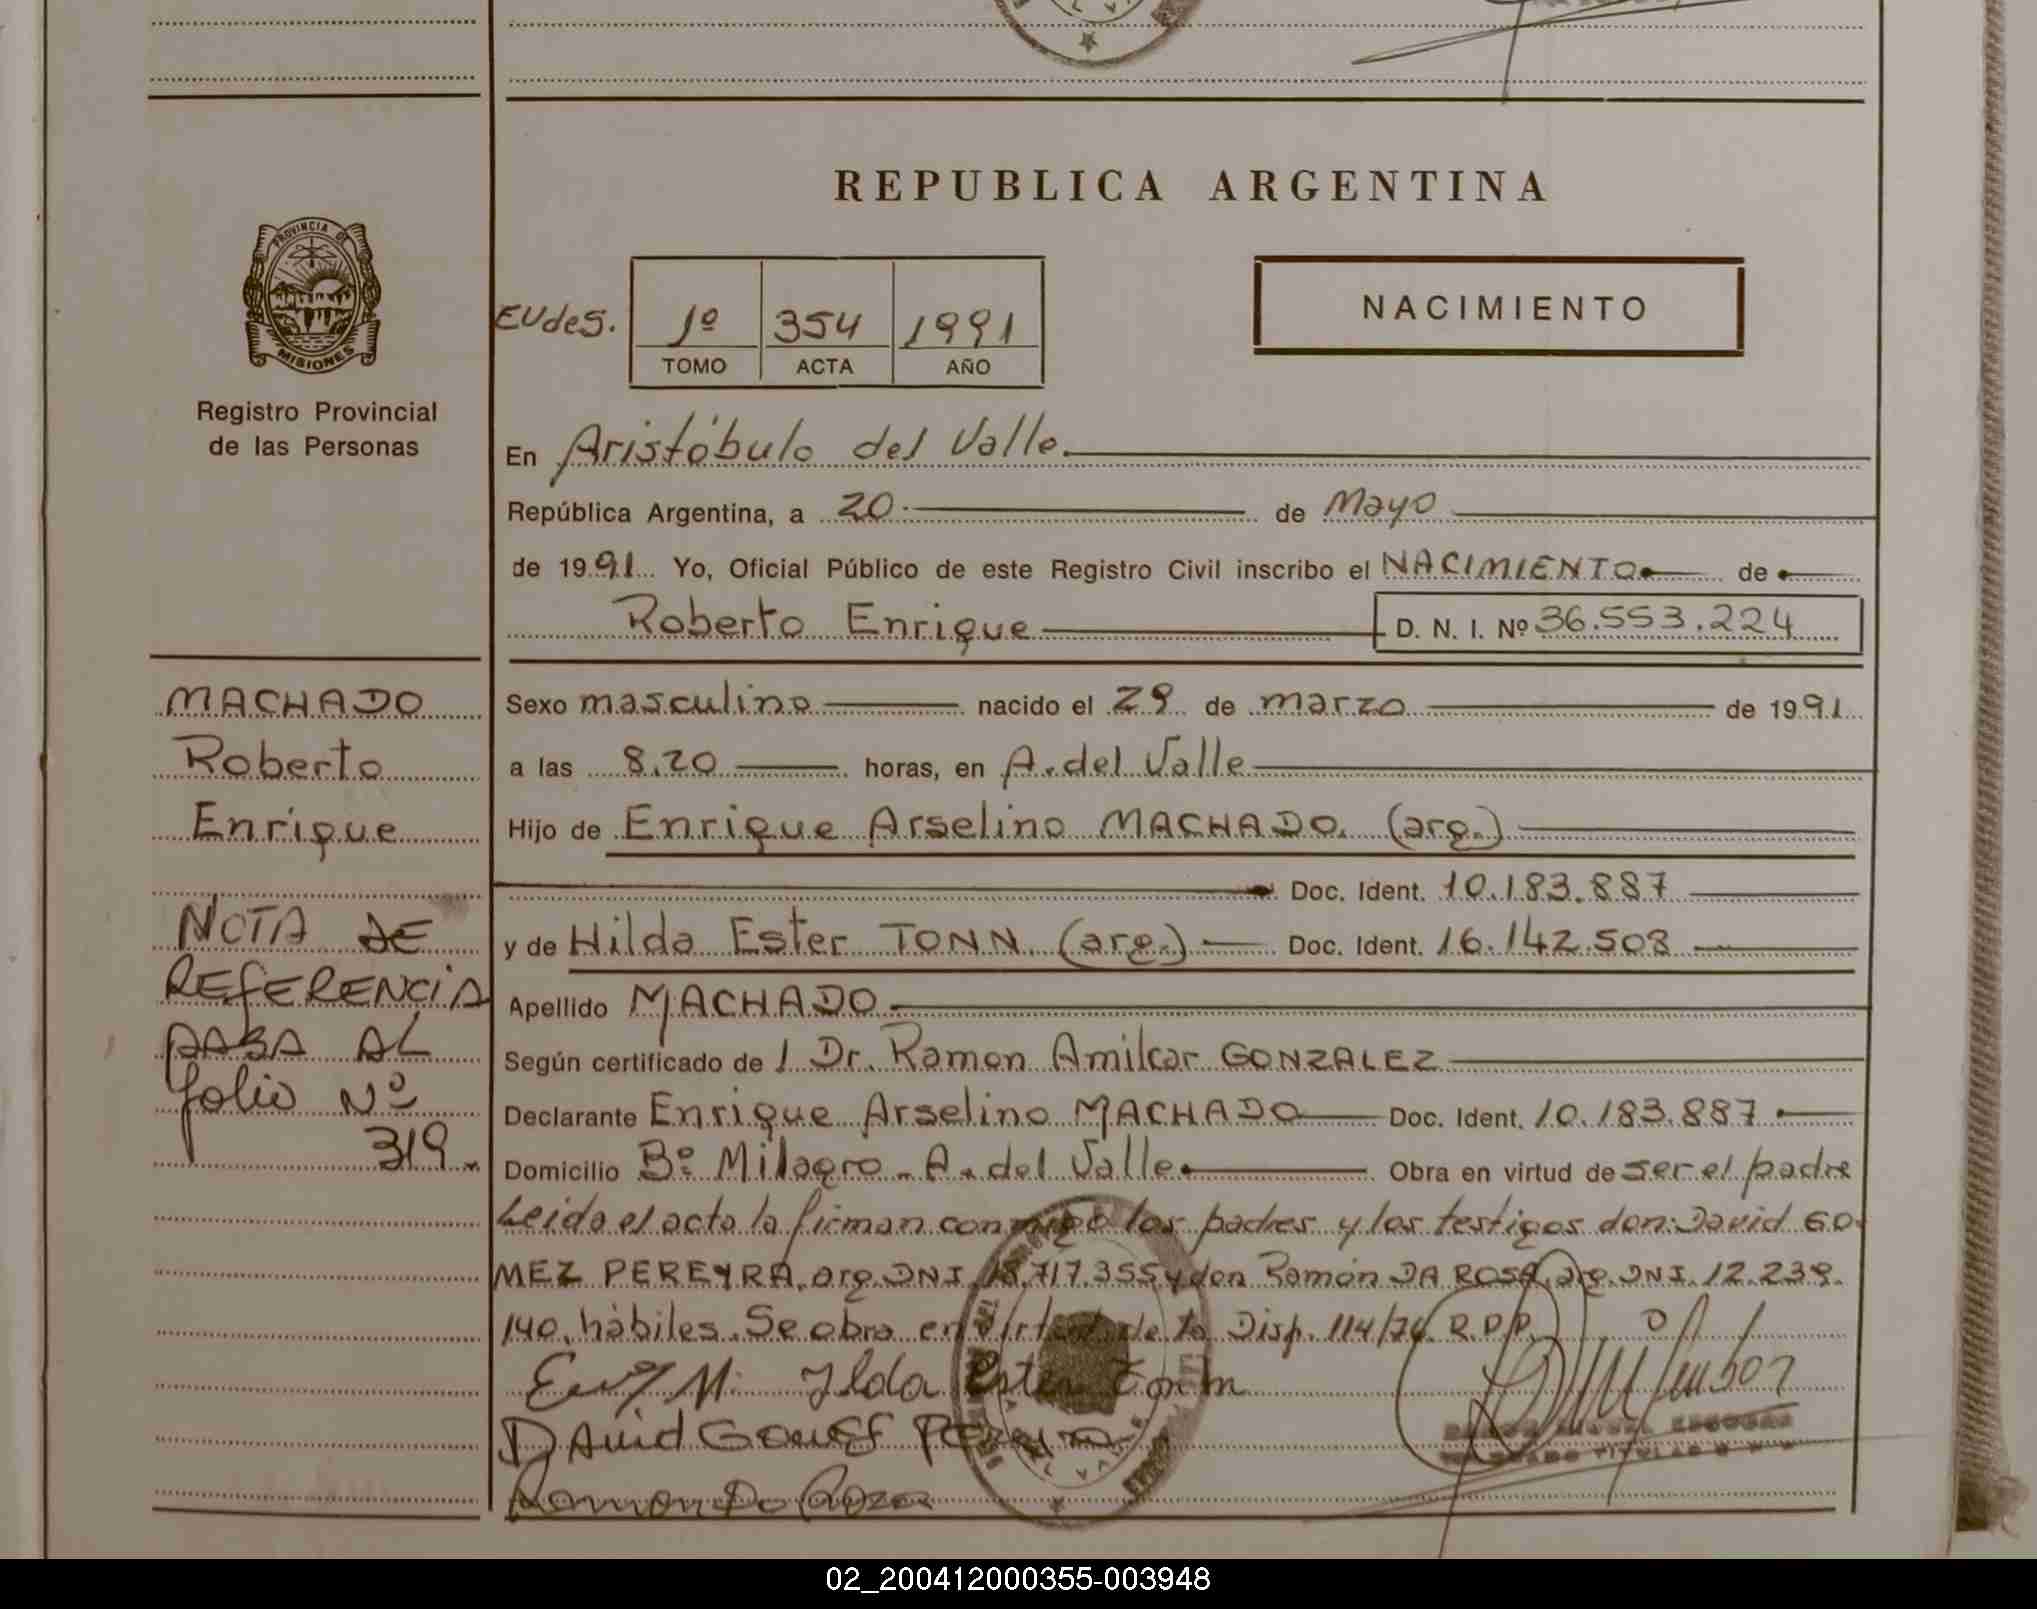 REPUBLICA ARGENTINA
PROVINCIA DE
MISIONES
Registro Provincial
de las Personas
EUdes.
1º 354 1991
TOMO ACTA AÑO
NACIMIENTO
En Aristóbulo del Valle.
República Argentina, a 20 de Mayo
de 1991 Yo, Oficial Público de este Registro Civil inscribo el NACIMIENTO de
Roberto Enrique D. N. I. Nº 36.553.224
MACHADO
Roberto
Enrique
NOTA DE
REFERENCIA
PASA AL
folio Nº
319.
Sexo masculino nacido el 29 de marzo de 1991
a las 8.20 horas, en A. del Valle
Hijo de Enrique Arselino MACHADO. (arg.)
Doc. Ident. 10.183.887
y de Hilda Ester TONN (arg.) Doc. Ident. 16.142.508
Apellido MACHADO
Según certificado de l Dr. Ramon Amilcar GONZALEZ
Declarante Enrique Arselino MACHADO Doc. Ident. 10.183.887
Domicilio Bº Milagro - A. del Valle Obra en virtud de ser el padre
Leida el acta la firman conmigo los padres y los testigos don: David GO-
MEZ PEREYRA, arg. DNI 18.717.355 y don Ramón DA ROSA, arg. DNI. 12.239.
140, hábiles. Se obra en virtud de la Disp. 114/74 R.P.P.
Ilda Ester Tonn
David Gomes
Ramon Da Roza
02_200412000355-003948